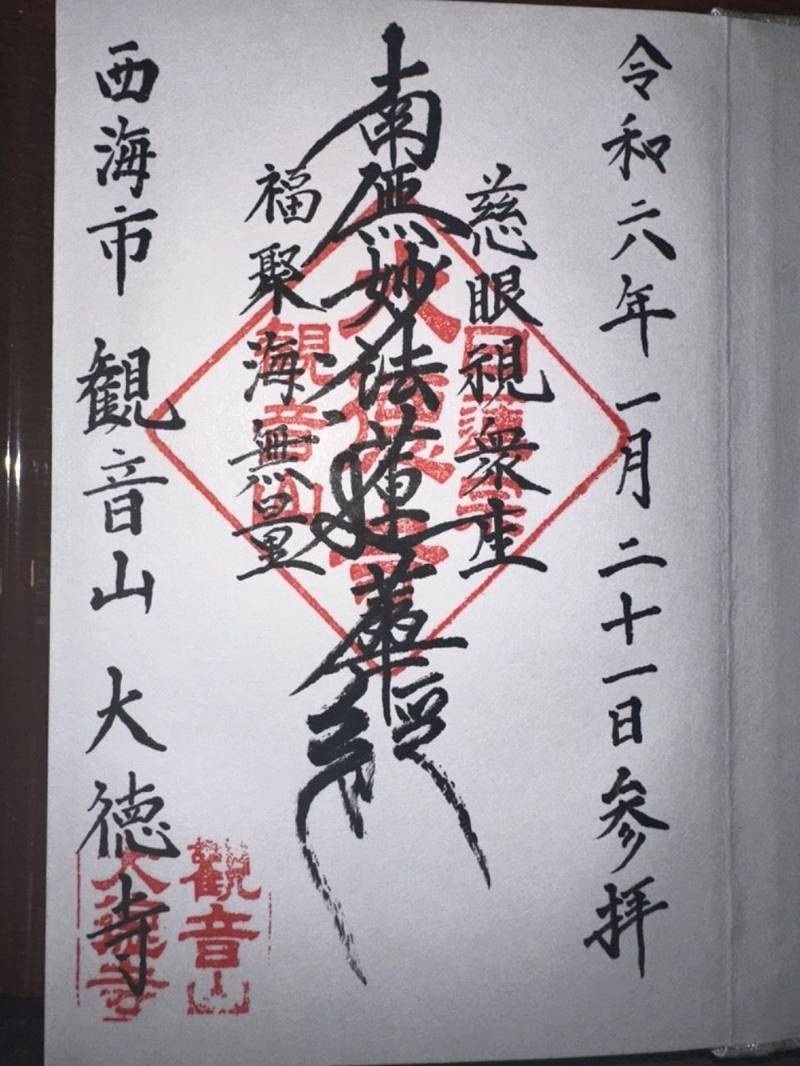 令和六年一月二十一日参拝
慈眼視衆生
南無妙法蓮華経
福聚海無量
西海市 観音山 大徳寺
日蓮宗
大徳寺
観音山
観音山
大徳寺